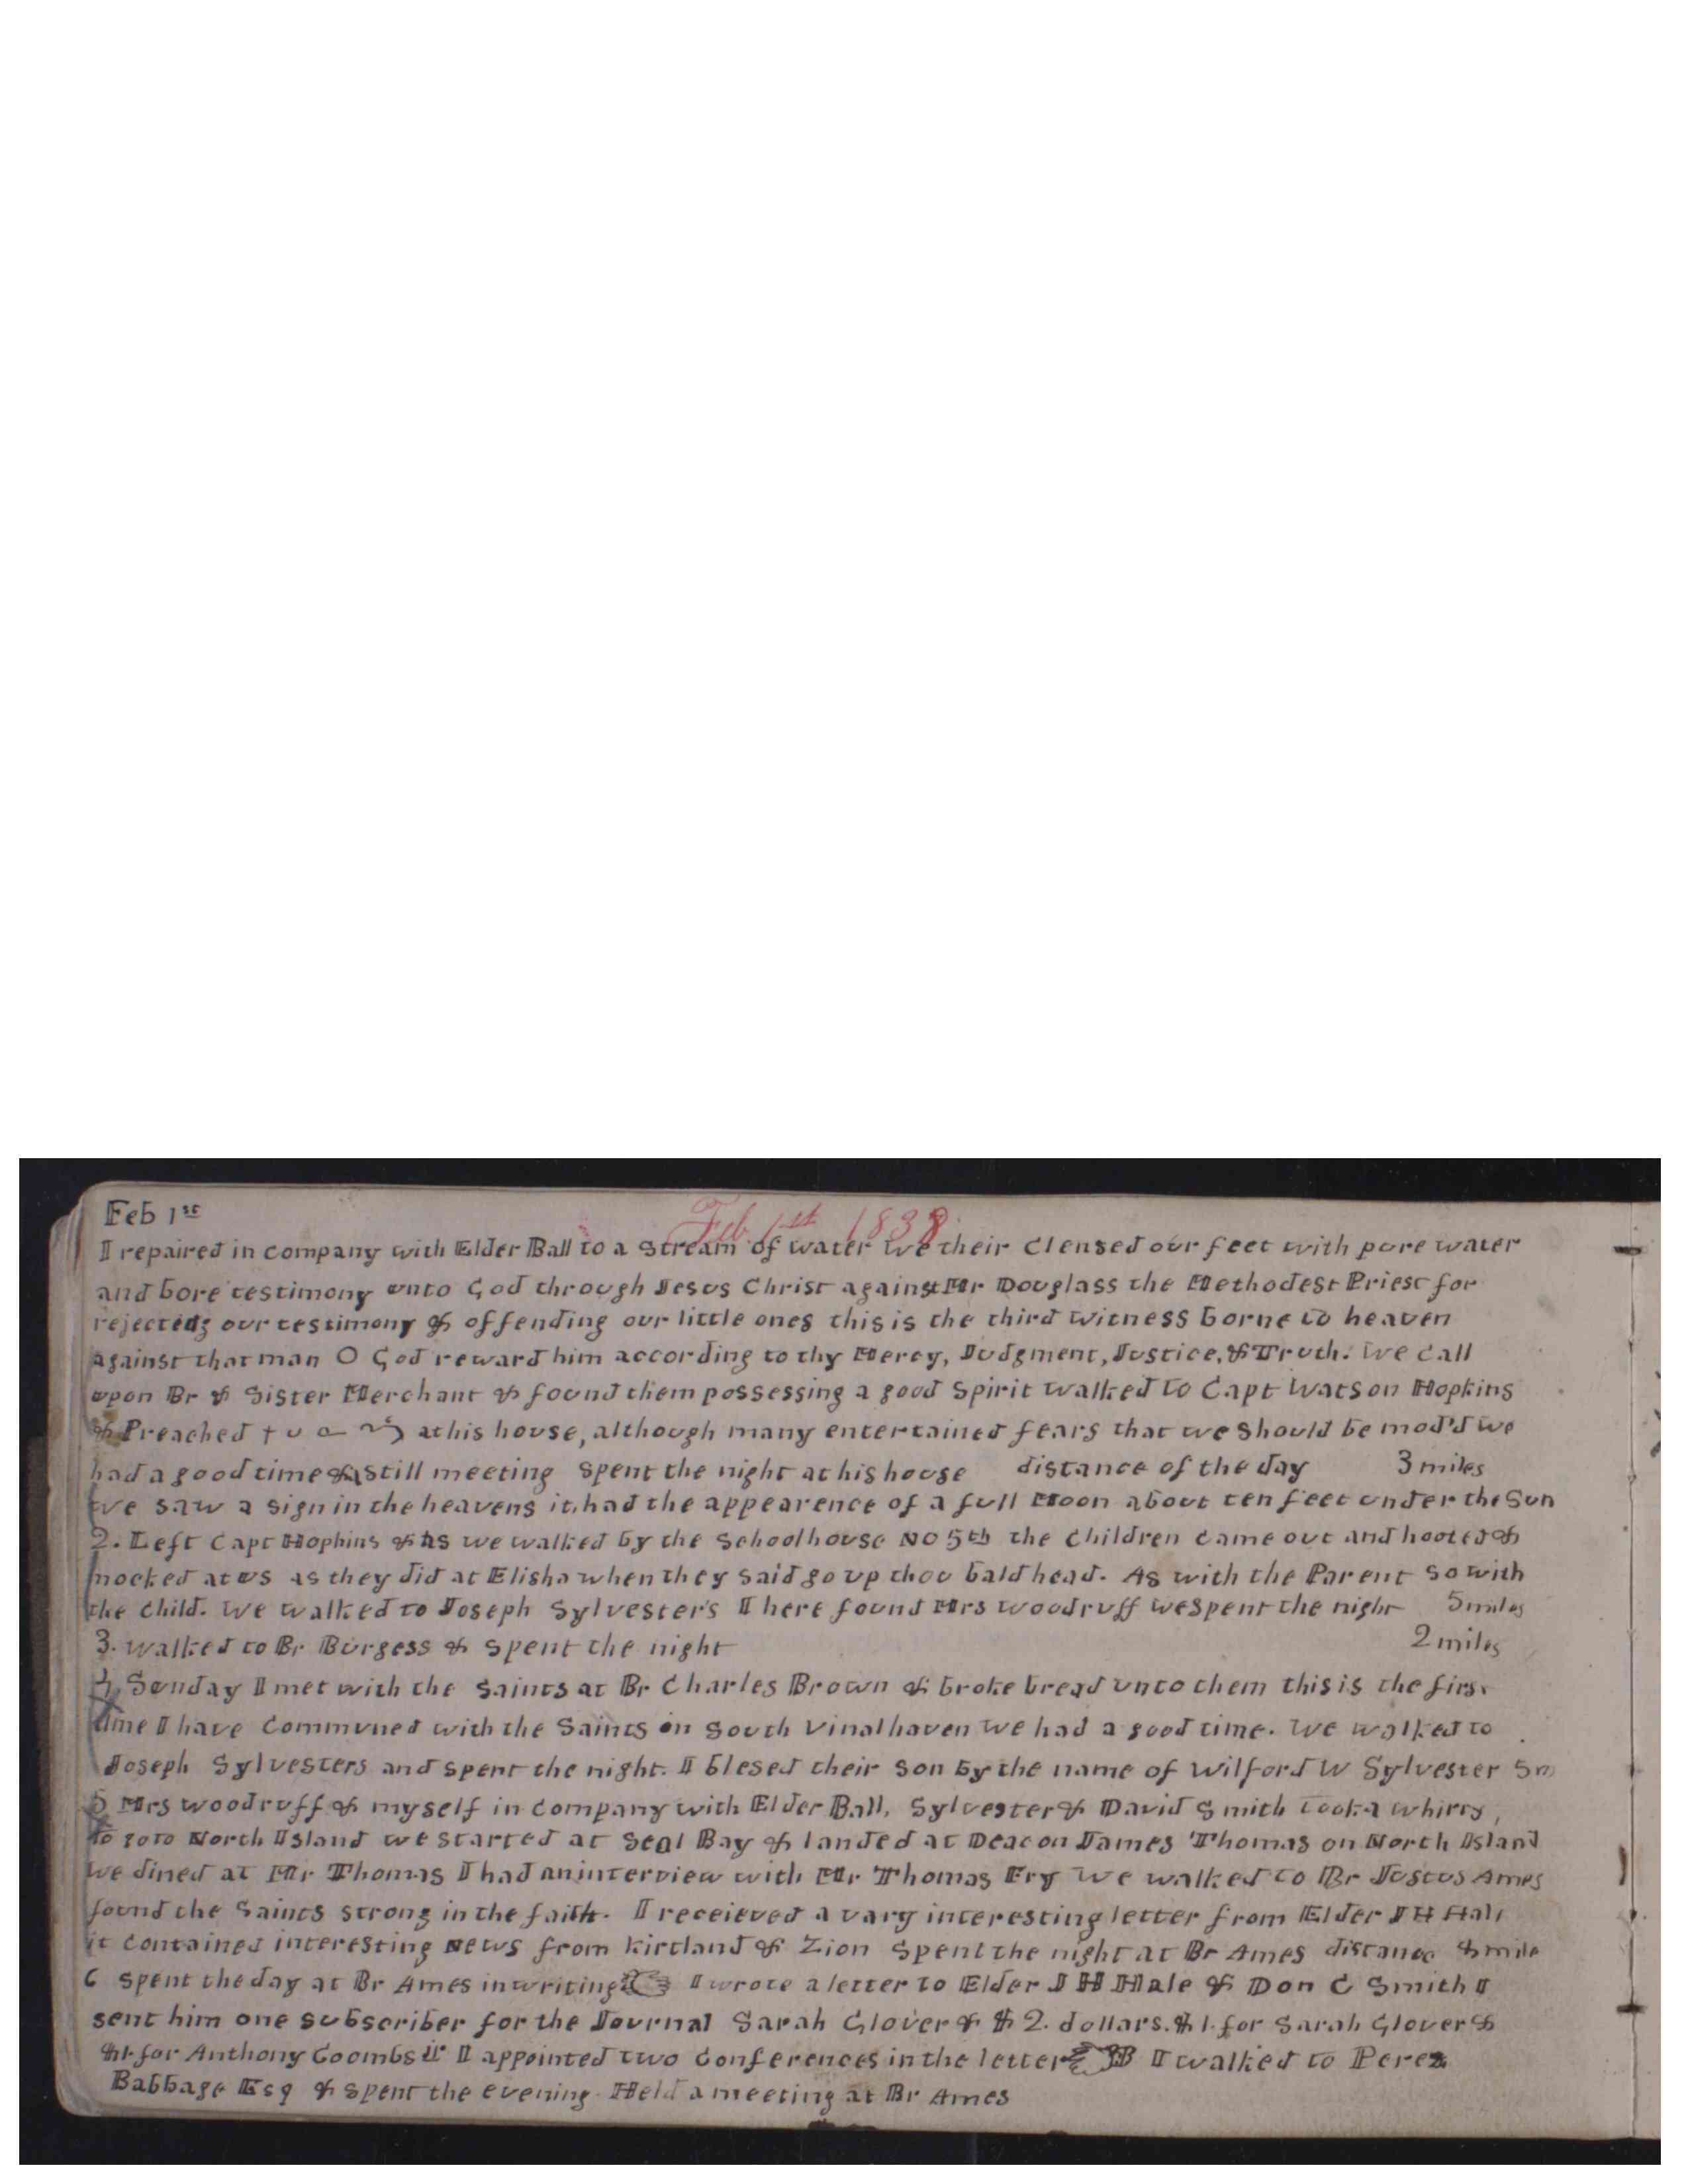 Feb 1st
Feb. 1st 1838.
I repaired in company with Elder Ball to a stream of water we their Clensed our feet with pure water
and bore testimony unto God through Jesus Christ against Mr Douglass the Methodest Priest for
rejecting our testimony & offending our little ones this is the third witness borne to heaven
against that man O God reward him according to thy Mercy, Judgment, Justice, & Truth. We Call
upon Br & Sister Merchant & found them possessing a good Spirit walked to Capt Watson Hopkins
& Preached at his house, although many entertained fears that we should be mob'd we
had a good time & still meeting Spent the night at his house distance of the day 3 miles
We saw a sign in the heavens it had the appearence of a full Moon about ten feet under the Sun
2. Left Capt Hopkins & as we walked by the Schoolhouse No 5th the Children Came out and hooted &
mocked at us as they did at Elisha when they said go up thou bald head. As with the Parent so with
the Child. We walked to Joseph Sylvester's I here found Mrs Woodruff we Spent the night 5 miles
3. walked to Br Burgess & spent the night 2 miles
4 Sunday I met with the Saints at Br Charles Brown & broke bread unto them this is the first
time I have Communed with the Saints on South Vinalhaven We had a good time. We walked to
Joseph Sylvesters and spent the night. I blesed their son by the name of Wilford W Sylvester 5 m
5 Mrs Woodruff & myself in Company with Elder Ball, Sylvester & David Smith took a whirry,
to go to North Island we started at Seal Bay & landed at Deacon James Thomas on North Island
We dined at Mr Thomas I had an interview with Mr Thomas Fry We walked to Br Justus Ames
found the Saints strong in the faith. I receieved a vary interesting letter from Elder J H Hale
it Contained interesting News from Kirtland & Zion Spent the night at Br Ames distance mile
6 Spent the day at Br Ames in writing I wrote a letter to Elder J H Hale & Don C Smith I
sent him one subscriber for the Journal Sarah Glover & $2. dollars. $1. for Sarah Glover &
$1. for Anthony Coombs Jr I appointed two Conferences in the letter I walked to Perez
Babbage Esq & spent the evening Held a meeting at Br Ames